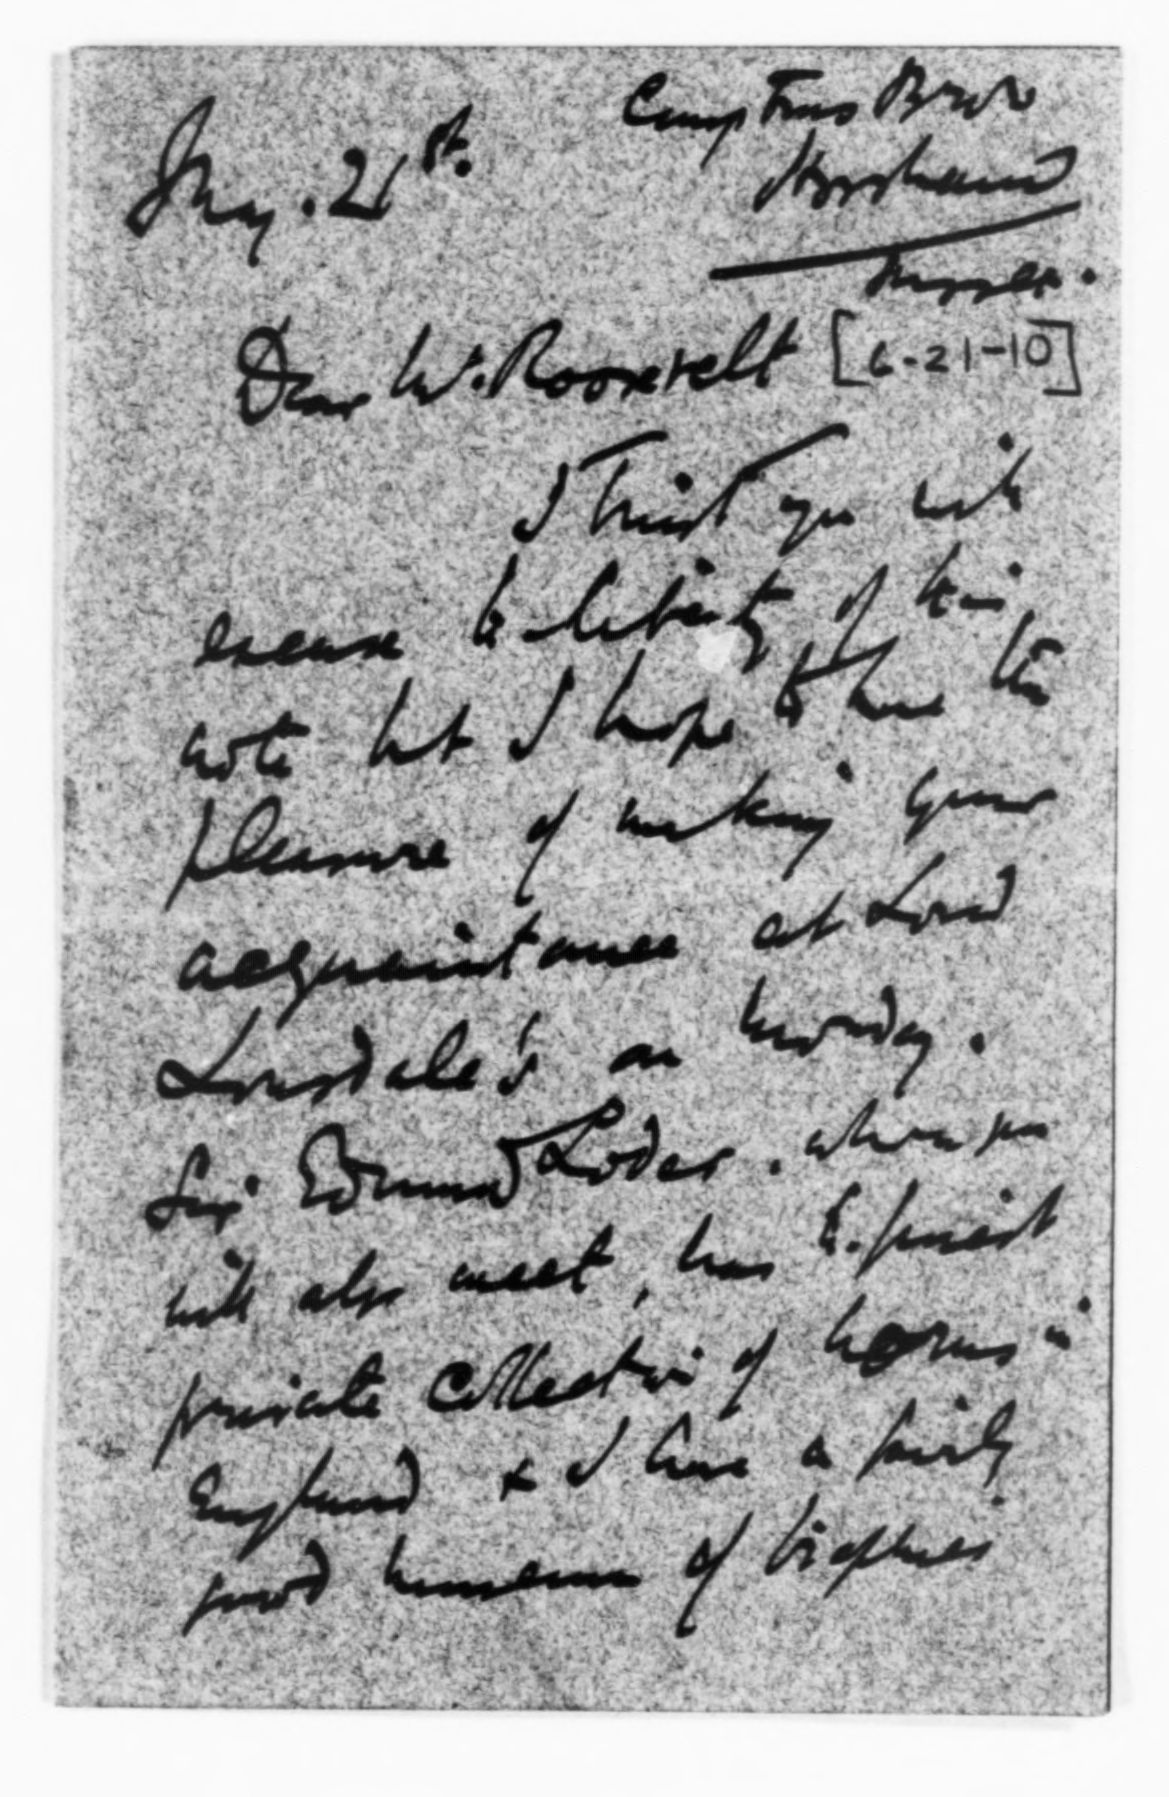 Compton's Brow
May. 21st.
Horsham
Sussex.
Dear Mr. Roosevelt [6-21-10]
I trust you will
excuse the liberty of this
note but I hope to have the
pleasure of making your
acquaintance at Lord
Lonsdale's on Monday.
Sir Edmund Loder. whom you
will also meet, has the finest
private collection of horns in
England & I have a fairly
good museum of big game